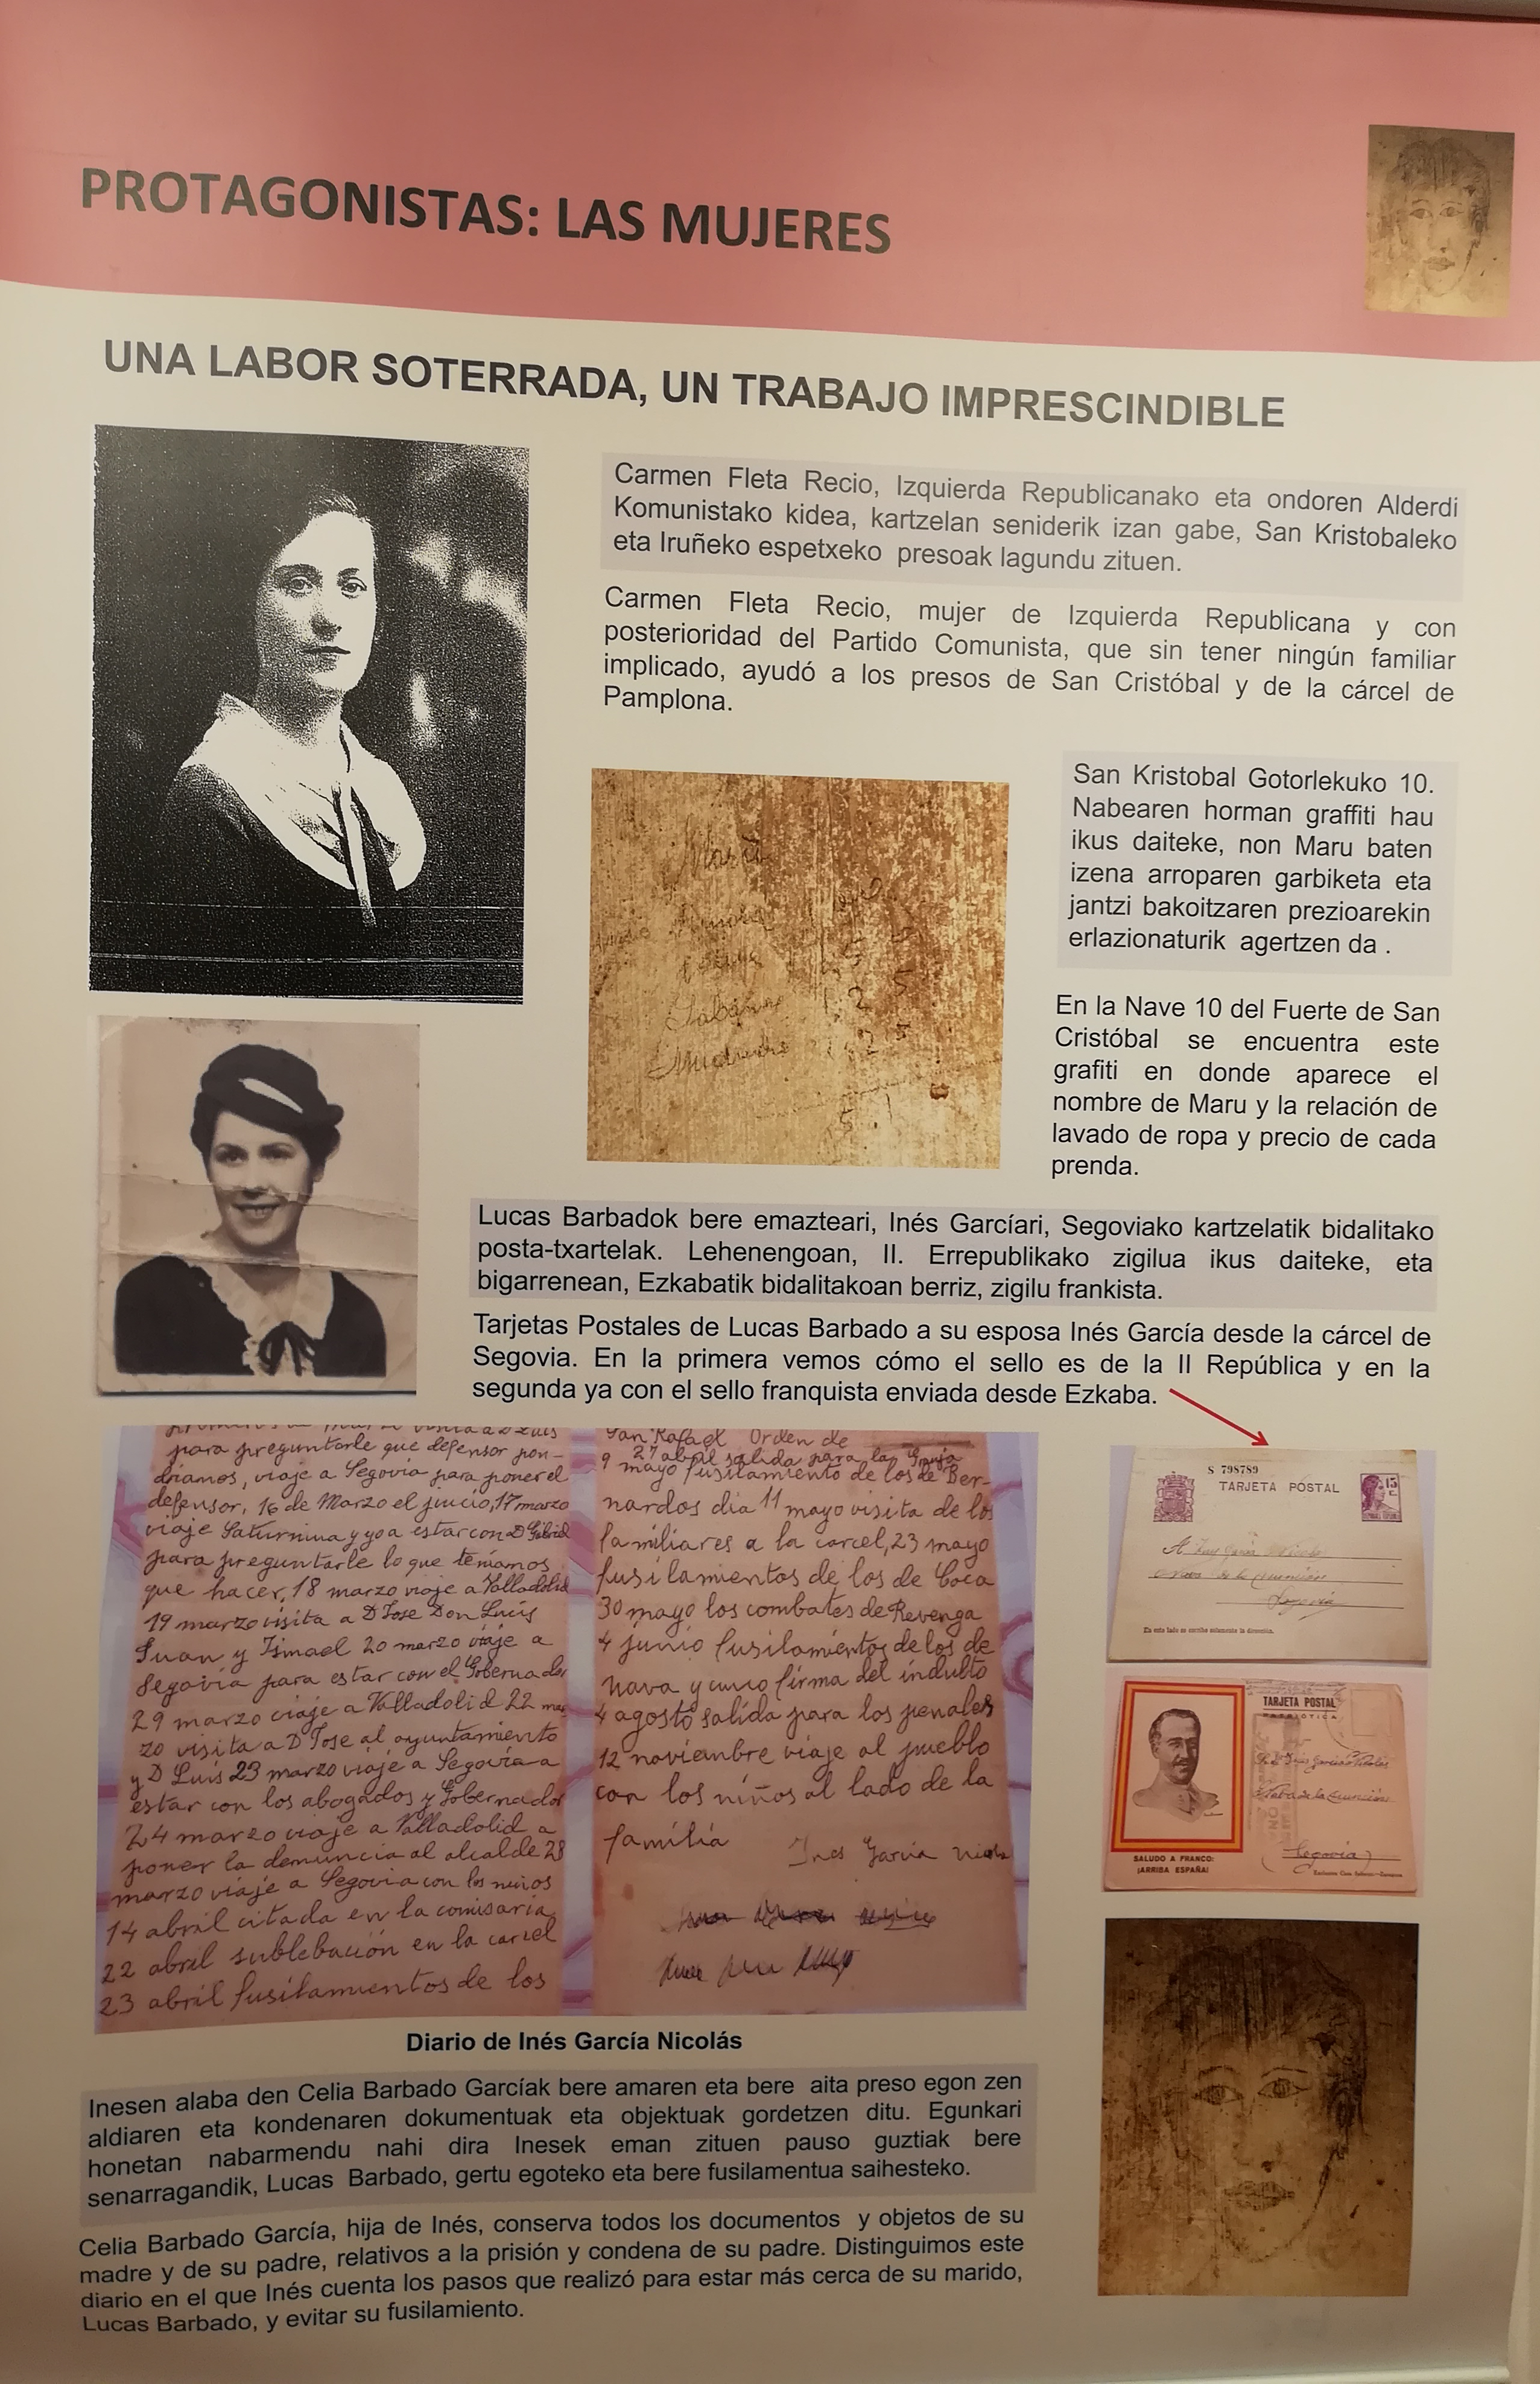 PROTAGONISTAS: LAS MUJERES
UNA LABOR SOTERRADA, UN TRABAJO IMPRESCINDIBLE
Carmen Fleta Recio, Izquierda Republicanako eta ondoren Alderdi
Komunistako kidea, kartzelan seniderik izan gabe, San Kristobaleko
eta Iruñeko espetxeko presoak lagundu zituen.
Carmen Fleta Recio, mujer de Izquierda Republicana y con
posterioridad del Partido Comunista, que sin tener ningún familiar
implicado, ayudó a los presos de San Cristóbal y de la cárcel de
Pamplona.
San Kristobal Gotorlekuko 10.
Nabearen horman graffiti hau
ikus daiteke, non Maru baten
izena arroparen garbiketa eta
jantzi bakoitzaren prezioarekin
erlazionaturik agertzen da .
En la Nave 10 del Fuerte de San
Cristóbal se encuentra este
grafiti en donde aparece el
nombre de Maru y la relación de
lavado de ropa y precio de cada
prenda.
Lucas Barbadok bere emazteari, Inés Garcíari, Segoviako kartzelatik bidalitako
posta-txartelak. Lehenengoan, II. Errepublikako zigilua ikus daiteke, eta
bigarrenean, Ezkabatik bidalitakoan berriz, zigilu frankista.
Tarjetas Postales de Lucas Barbado a su esposa Inés García desde la cárcel de
Segovia. En la primera vemos cómo el sello es de la II República y en la
segunda ya con el sello franquista enviada desde Ezkaba.
para preguntarle que defensor pon-
driamos, viaje a Segovia para poner el
defensor, 16 de Marzo el juicio, 17 marzo
viaje Saturnina y yo a estar con D
para preguntarle lo que teniamos
que hacer, 18 marzo viaje a Valladolid
19 marzo visita a D Jose Don Luis
Juan y Ismael 20 marzo viaje a
Segovia para estar con el Gobernador
29 marzo viaje a Valladolid 22 mar
zo visita a D Jose al ayuntamiento
y D Luis 23 marzo viaje a Segovia a
estar con los abogados y Gobernador
24 marzo viaje a Valladolid a
poner la denuncia al alcalde 28
marzo viaje a Segovia con los niños
14 abril citada en la comisaria
22 abril sublebación en la carcel
23 abril fusilamientos de los
San Rafael Orden de
27 abril salida para la Granja
9 mayo fusilamiento de los de Ber-
nardos dia 11 mayo visita de los
familiares a la carcel, 23 mayo
fusilamientos de los de Coca
30 mayo los combates de Revenga
4 junio fusilamientos de los de
nava y cuna firma del indulto
4 agosto salida para los penales
12 noviembre viaje al pueblo
con los niños al lado de la
familia
Ines Garcia
S 798789
TARJETA POSTAL
15 C.
Segovia
En este lado se escribe solamente la dirección.
TARJETA POSTAL
PATRIÓTICA
Segovia
SALUDO A FRANCO:
¡ARRIBA ESPAÑA!
Diario de Inés García Nicolás
Inesen alaba den Celia Barbado Garcíak bere amaren eta bere aita preso egon zen
aldiaren eta kondenaren dokumentuak eta objektuak gordetzen ditu. Egunkari
honetan nabarmendu nahi dira Inesek eman zituen pauso guztiak bere
senarragandik, Lucas Barbado, gertu egoteko eta bere fusilamentua saihesteko.
Celia Barbado García, hija de Inés, conserva todos los documentos y objetos de su
madre y de su padre, relativos a la prisión y condena de su padre. Distinguimos este
diario en el que Inés cuenta los pasos que realizó para estar más cerca de su marido,
Lucas Barbado, y evitar su fusilamiento.